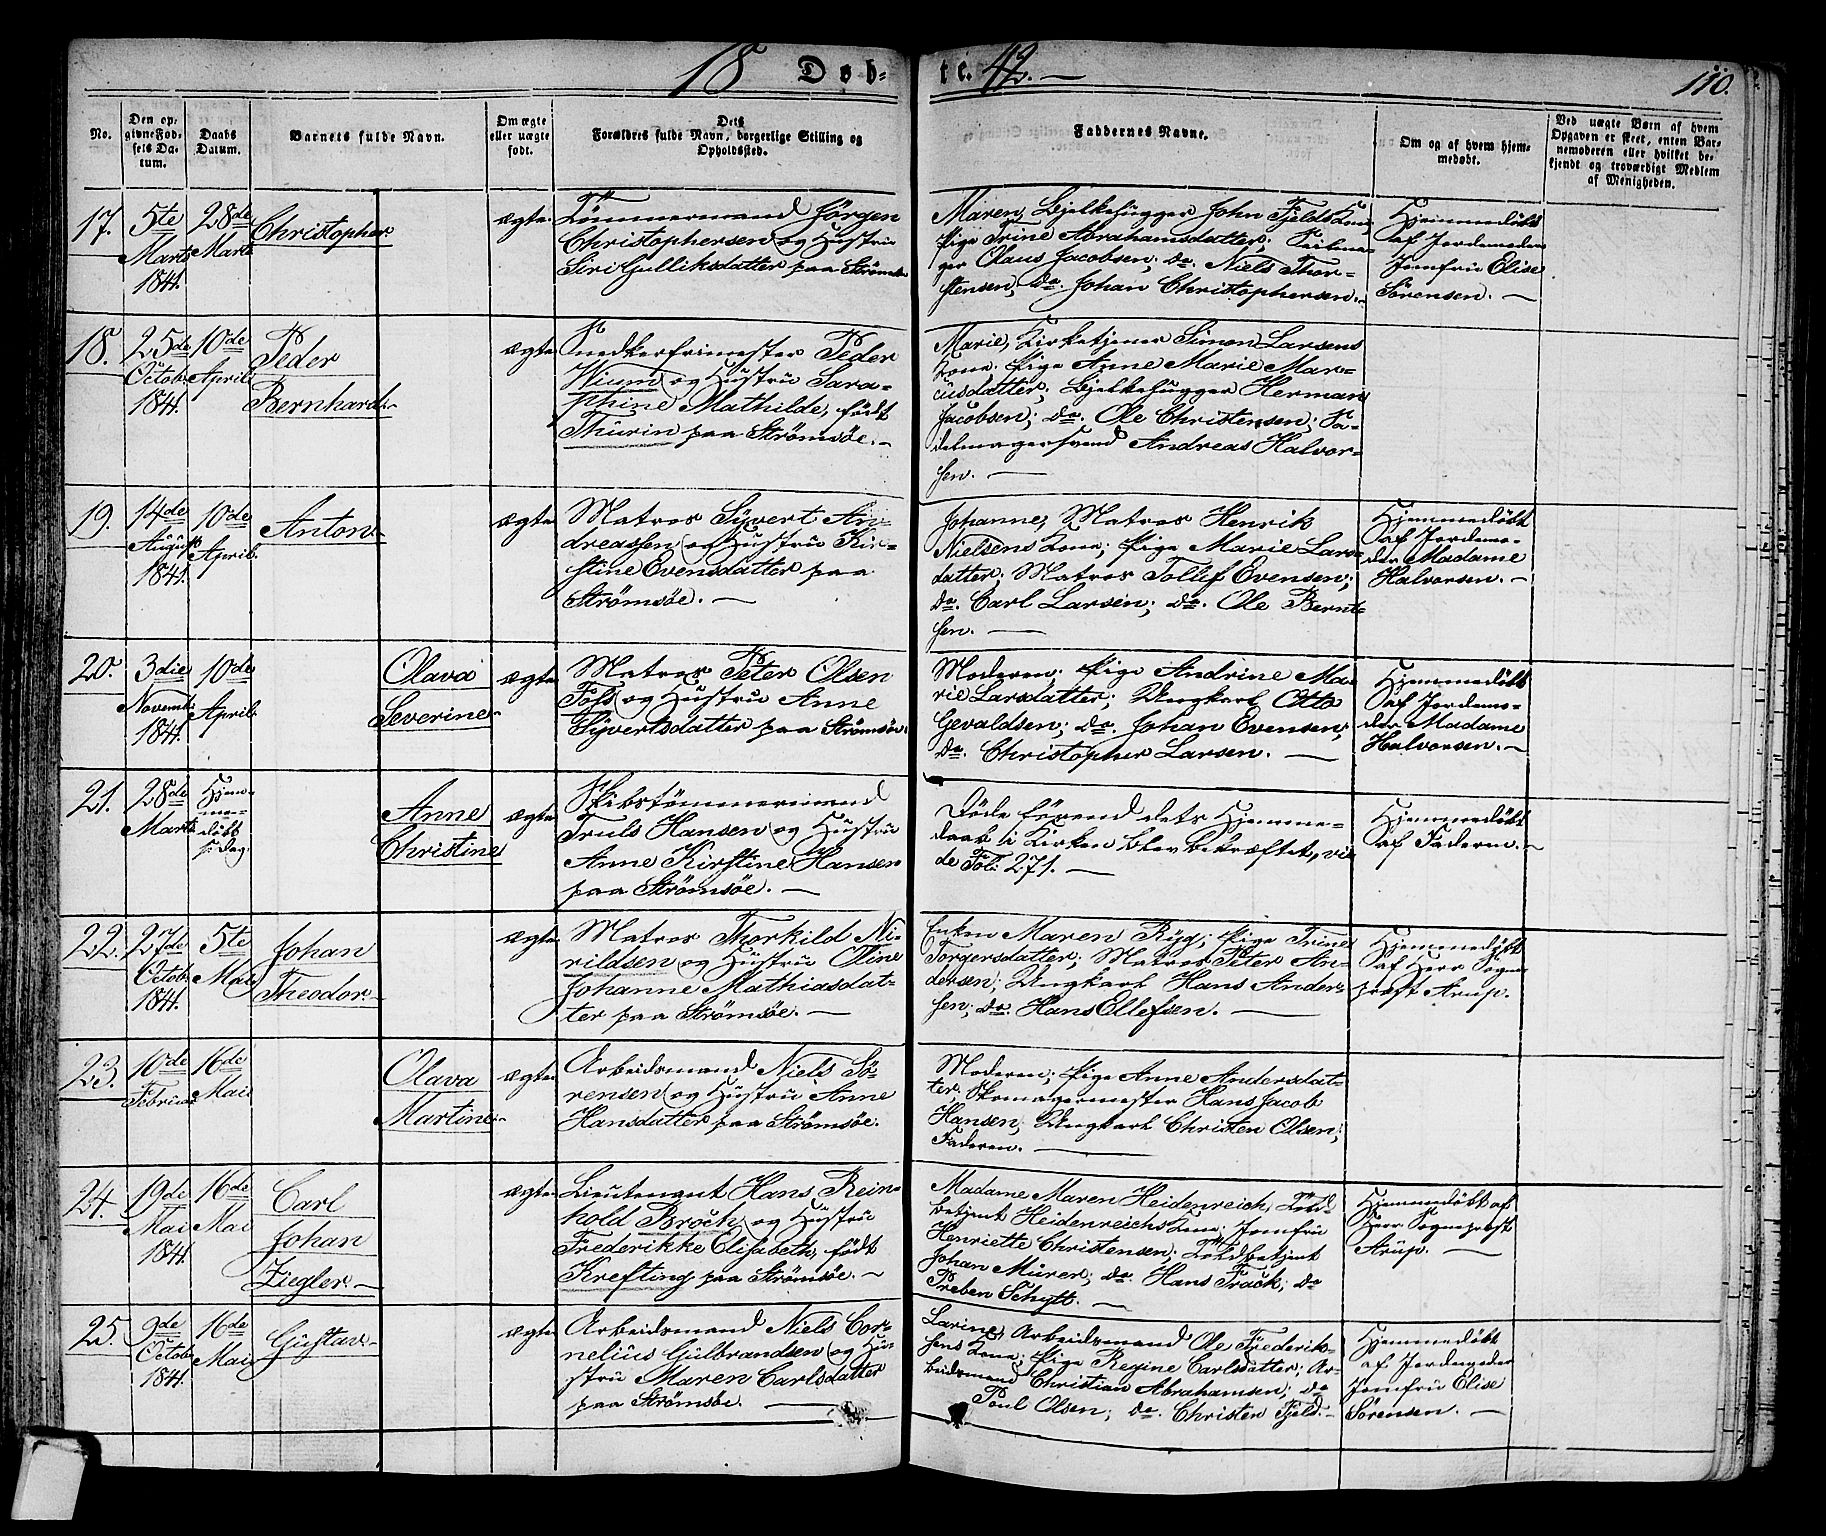 18 Döb- te. 42. 110.
No.
Den op-
givne Fød-
sels Da-
tum.
Daabs
Datum.
Barnets fulde Navn.
Om ægte
eller uægte
født.
Dets
Forældres fulde Navn, borgerlige Stilling og
Opholdssted.
Faddernes Navne.
Om og af hvem hjem-
medøbt.
Ved uægte Børn af hvem
Opgaven er skeet, enten Bar-
nemoderen eller hvilket be-
kjendt og troværdigt Medlem
af Menigheden.
17.
5te
Marts
1841.
28de
Marts
Christopher
ægte
Tömmermand Jörgen
Christophersen og Hustru
Siri Gulliksdatter paa Strömsö
Maren, Bjelkehugger John Fjelds Kone;
Pige Trine Abrahamsdatter;
Claus Jacobsen; do. Niels Thor-
stensen; do. Johan Christophersen.-
Hjemmedöbt
af Jordemoder
Jomfru Elise
Sörensen. -
18.
25de
Octob.
1841.
10de
April
Peder
Bernhard.-
ægte
Snedkerfrimester Peder
Wium og Hustru Sara-
phine Mathilde, födt
Thurin paa Strömsöe. -
Marie, Kirketjener Simon Larsens
Kone; Pige Anne Marie Mar-
cusdatter; Bjelkehugger Herman
Jacobsen; do. Ole Christensen; Sa-
delmagersvend Andreas Halvor-
sen. -
19.
14de
August
1841.
10de
April.
Anton.-
ægte
Matros Syvert An-
dreassen og Hustru Kir-
stine Evensdatter paa
Strömsöe. -
Johanne, Matros Henrik
Nielsens Kone; Pige Marie Lars-
datter; Matros Tollef Evensen;
do. Carl Larsen; do. Ole Bernt-
sen. -
Hjemmedöbt
af Jordemo-
der Madame
Halvorsen. -
20.
3die
Novemb.
1841.
10de
April.
Olava
Severine.-
ægte
Matros Peter Olsen
Foss og Hustru Anne
Syvertsdatter paa Strömsöe.
Moderen; Pige Andrine Ma-
rie Larsdatter; Ungkarl Otto
Gevaldsen; do. Johan Evensen;
do. Christopher Larsen. -
Hjemmedöbt
af Jordemo-
der Madame
Halvorsen. -
21.
28de
Marts
Hjem-
me-
döbt
s. Dag.
Anne
Christine
ægte
Skibstömmermand
Truls Hansen og Hustru
Anne Kirstine Hansen
paa Strömsöe. -
Döde förend dets Hjemme-
daab i Kirken blev bekræftet, vi-
de Fol: 271. -
Hjemmedöbt
af Faderen. -
22.
27de
Octob.
1841.
5te
Mai
Johan
Theodor.-
ægte
Matros Thorkild Ni-
rildsen og Hustru Oline
Johanne Mathiasdat-
ter paa Strömsöe. -
Enken Maren Ryg; Pige Trine
Torgersdatter; Matros Peter An-
dersen; Ungkarl Hans Ander-
sen; do. Hans Ellefsen. -
Hjemmedöbt
af Herr Sogne-
præst Arup.
23.
10de
Februar
16de
Mai
Olava
Martine.-
ægte
Arbeidsmand Niels Sö-
rensen og Hustru Anne
Hansdatter paa Strömsöe.
Moderen; Pige Anne Andersdat-
ter; Skomagermester Hans Jacob
Hansen; Ungkarl Christen Olsen;
Faderen. -
24.
19de
Mai
1841.
16de
Mai
Carl
Johan
Ziegler.-
ægte
Lieutenant Hans Rein-
hold Broch og Hustru
Frederikke Elisabeth, födt
Krefting paa Strömsöe. -
Madame Maren Heidenreich, Told-
betjent Heidenreichs Kone; Jomfru
Henriette Christensen; Toldbetjent
Johan Mürer; do. Hans Track; do
Preben Schytt. -
Hjemmedöbt af
Herr Sognepræst
Arup. -
25.
9de
Octob.
1841.
16de
Mai
Gustav.-
ægte
Arbeidsmand Niels Cor-
nelius Gulbrandsen og Hu-
stru Maren Carlsdatter
paa Strömsöe. -
Larine, Arbeidsmand Ole Frederik-
sens Kone; Pige Regine Carlsdatter; Ar-
beidsmand Christian Abrahamsen; do
Poul Olsen; do. Christen Fjeld.-
Hjemmedöbt
af Jordemoder
Jomfru Elise
Sörensen. -